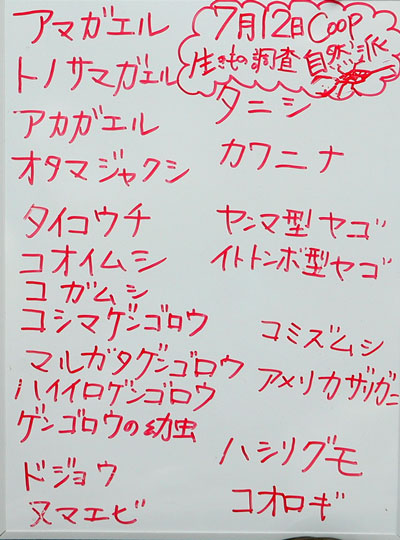 7月12日 Coop
生きもの調査 自然派
アマガエル
トノサマガエル
アカガエル
オタマジャクシ
タイコウチ
コオイムシ
コガムシ
コシマゲンゴロウ
マルガタゲンゴロウ
ハイイロゲンゴロウ
ゲンゴロウの幼虫
ドジョウ
ヌマエビ
タニシ
カワニナ
ヤンマ型ヤゴ
イトトンボ型ヤゴ
コミズムシ
アメリカザリガニ
ハシリグモ
コオロギ